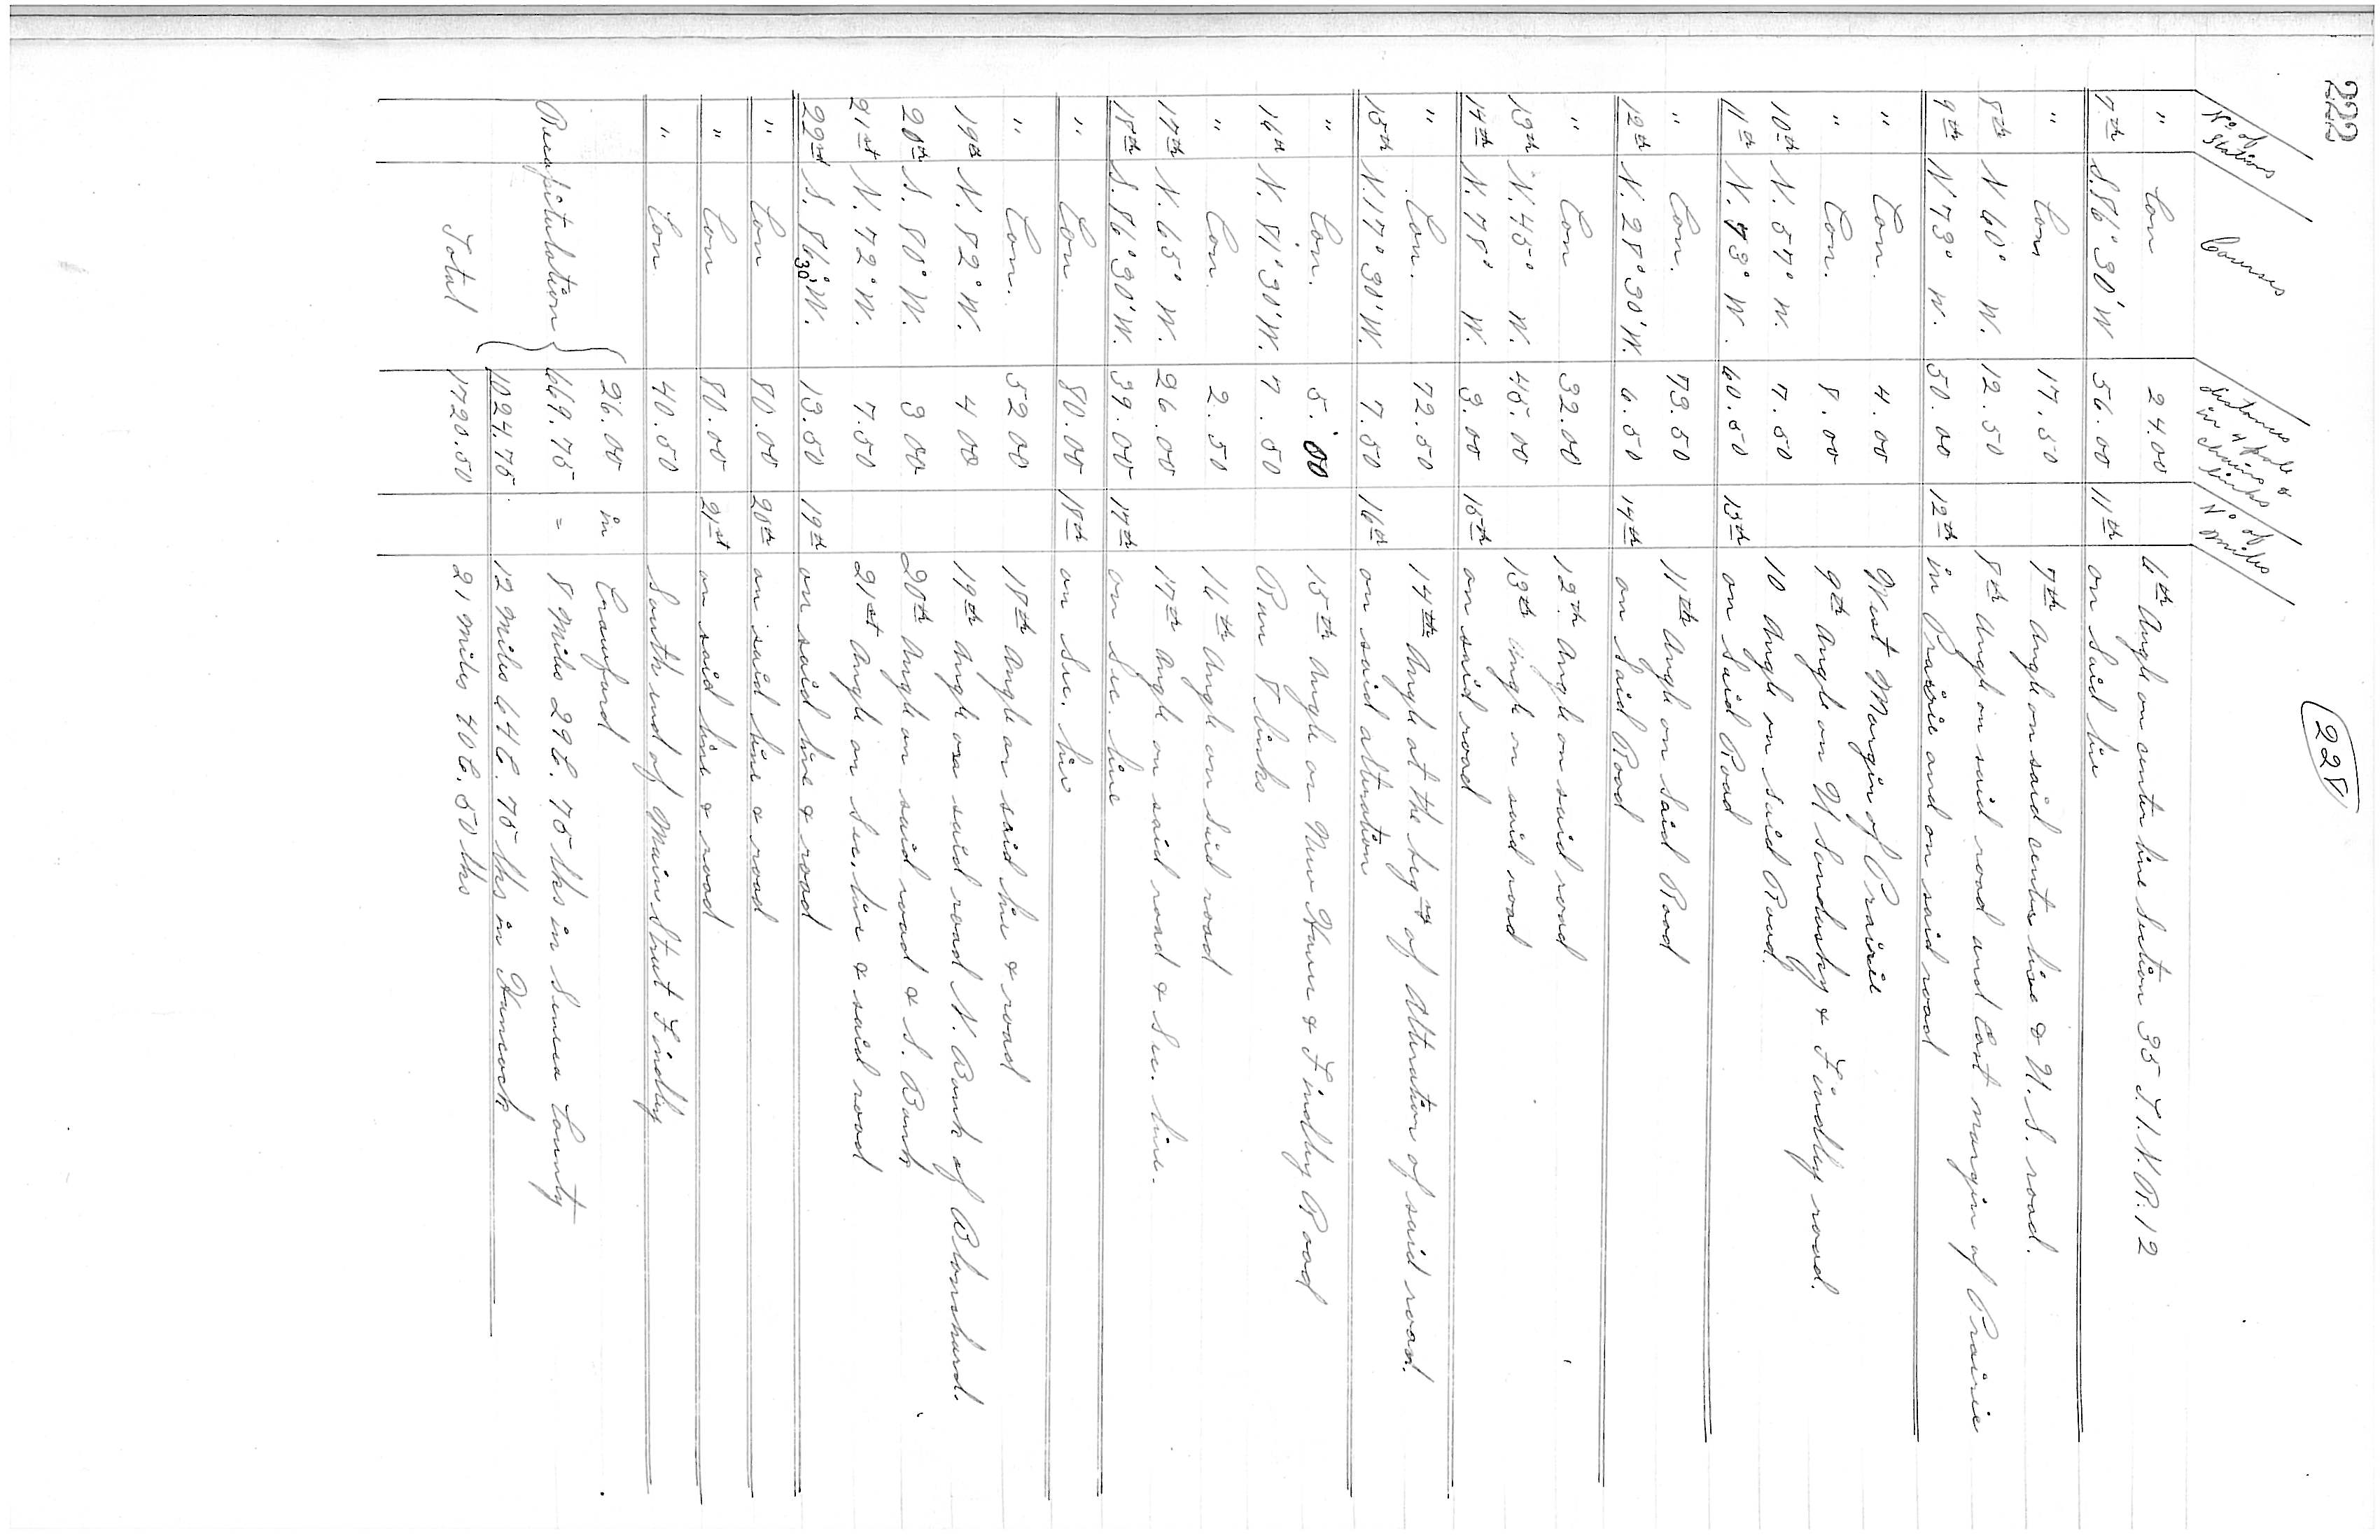 222
228
No of Stations Courses Distances & pole in chains & links No of Miles
" Con 24.00 6th Angle on center line Section 35 T.1.N.R.12
7th S.86°30'W 56.00 11th on Said line
" Con 17.50 7th Angle on said center line & U.S. road.
8th N 60° W. 12.50 8th Angle on said road and East margin of Prairie
9th N 73° W. 50.00 12th in Prairie and on said road
" Con. 4.00 West Margin of Prairie
" Con. 8.00 9th Angle on U Sandusky & Findley road.
10th N. 57° W. 7.50 10 Angle on said Road.
11th N. 73° W. 60.50 13th on Said Road
" Con. 73.50 11th Angle on Said Road
12th N. 28°30'W. 6.50 14th on Said Road
" Con 32.00 12th Angle on said road
13th N. 45° W. 45.00 13th Angle on said road
14th N. 78° W. 3.00 15th on said road
" Con. 72.50 14th Angle at the beg'ng of Alteration of said road.
15th N. 17°30'W. 7.50 16th on said alteration
" Con. 5.00 15th Angle on New Haven & Findley Road
16th N. 81°30'W. 7.50 Run 8 links
" Con. 2.50 16th Angle on Said road
17th N. 65° W. 26.00 17th Angle on said road & Sec. line.
18th S. 86°30'W. 39.00 17th on Sec. line
" Con. 80.00 18th on Sec. line
" Con. 52 00 18th Angle on said line & road
19th N. 82° W. 4 00 19th Angle on said road N. Bank of Blanchard.
20th S. 80° W. 3 00 20th Angle on said road & S. Bank
21st N. 72° W. 7.50 21st Angle on Sec. line & said road
22nd S. 86°30' W. 13.50 19th on said line & road
" Con 80.00 20th on said line & road
" Con 80.00 21st on said line & road
" Con 40.50 South end of Main Street Findley
26.00 in Crawford
Recapitulation 669.75 = 8 Miles 29C. 75 lks in Seneca County
1024.75 12 Miles 64C. 75 lks in Hancock
Total 1720.50 21 Miles 40C. 50 lks